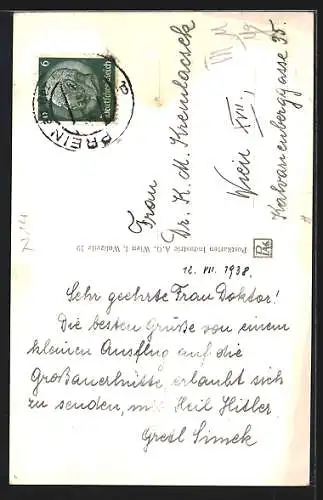 12. VII. 1938.
Sehr geehrte Frau Doktor!
Die besten Grüße von einem
kleinen Ausflug auf die
Großauerhütte, erlaubt sich
zu senden, mit Heil Hitler
Gretl Simek
Frau
Dr. K. M. Kremlacsek
Wien XVII.,
Kalvarienberggasse 35.
Postkarten Industrie A. G., Wien I, Wollzeile 19
PAG
Deutsches Reich
6
PREIN